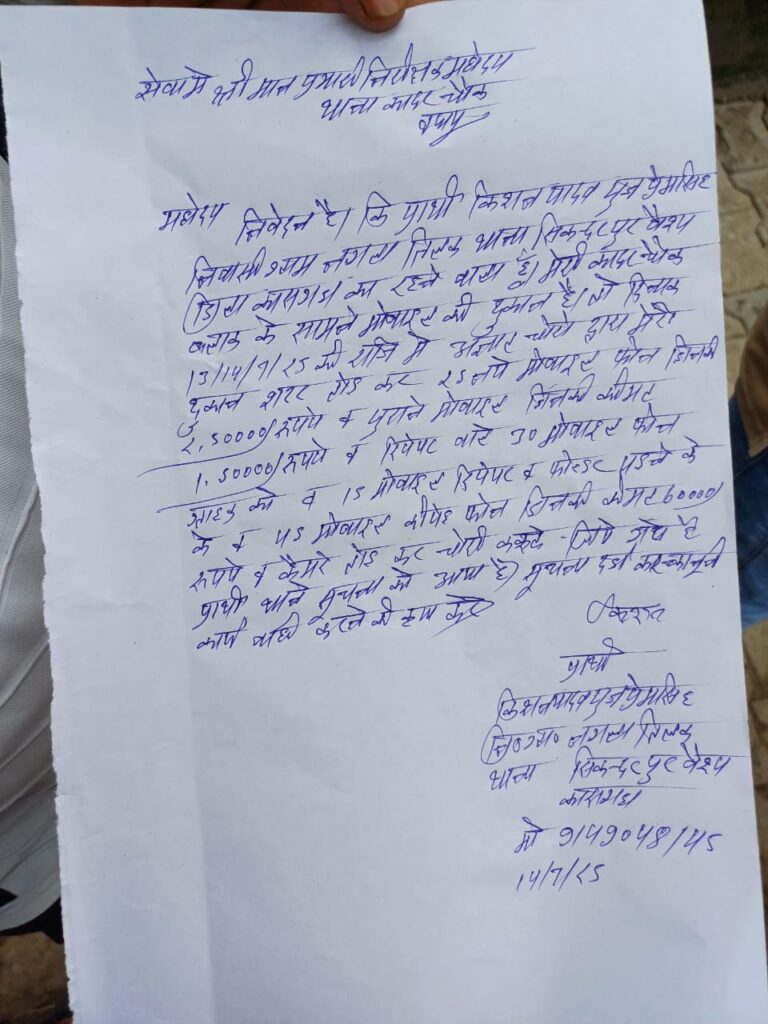 सेवामे श्री मान प्रभारी निरीक्षक महोदय
थाना कादर चौक
महोदय निवेदन है। कि प्रार्थी किशन यादव पुत्र प्रेमसिह
निवासी ग्राम नगला तिलक थाना सिकन्दरपुर वैश्य
जिला कासगंज का रहने वाला है। मेरी कादर चौक
ब्लाक के सामने मोबाइल की दुकान है। तो दिनाक
13/14/7/25 की रात्रि मे अज्ञात चोरो द्वारा मेरी
दुकान शटर तोड कर 25 नये मोबाइल फोन जिनकी
2,50000/ रुपये व पुराने मोबाइल जिनकी कीमत
1,50000/ रुपये व रिपेयर वाले 30 मोबाइल फोन
ग्राहक को व 15 मोबाइल रिपेयर व फोल्डर पडने के
के व 45 मोबाइल कीपेड फोन जिनकी कीमत 60000/
रुपये व कैमरे तोड कर चोरी करके लिये गये है
प्रार्थी थाने सूचना को आया है। सूचना दर्ज कर कानूनी
कार्य वाही करने की कृपा करे
प्रार्थी
किशन यादव पुत्र प्रेमसिह
नि० ग्रा० नगला तिलक
थाना सिकन्दर पुर वैश्य
कासगंज
मो 9149048145
14/7/25